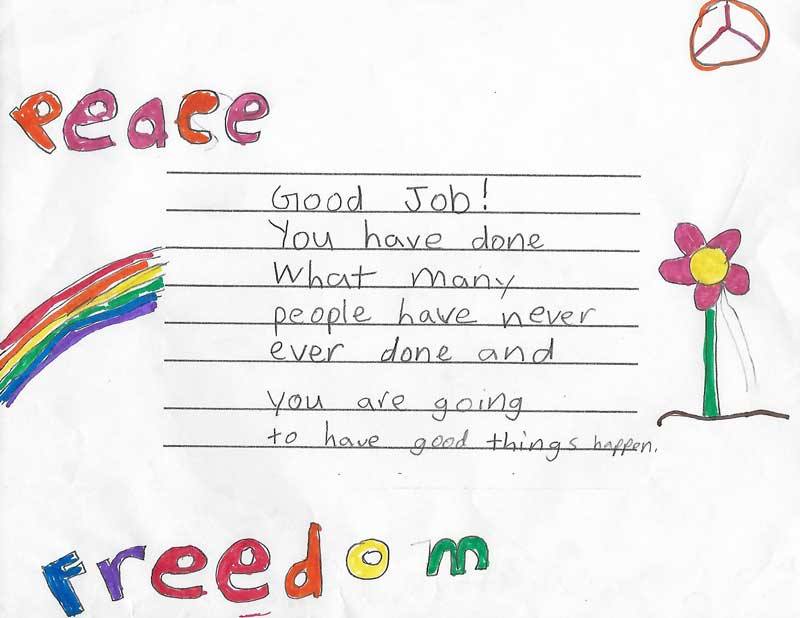 Peace
Good Job!
You have done
What many
people have never
ever done and
you are going
to have good things happen.
Freedom